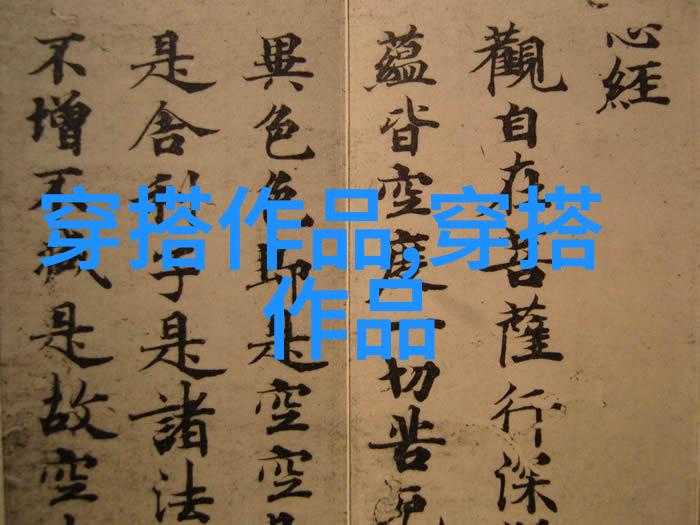 心經
觀自在菩薩行深
蘊皆空度一切苦厄
異色色即是空空
是舍利子是諸法
不增不減是故空
穿搭作品,穿搭
作品